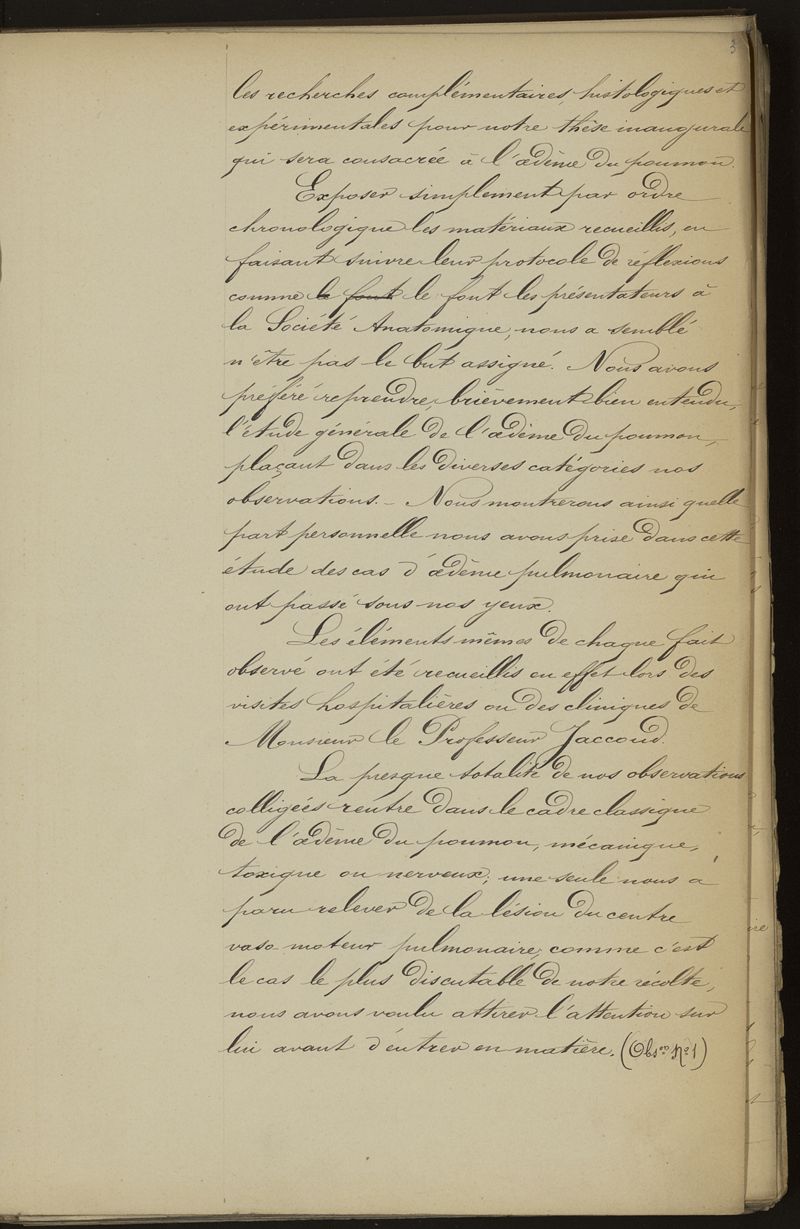 3
les recherches complémentaires, histologiques et
expérimentales pour notre thèse inaugurale
qui sera consacrée à l'œdème du poumon.
Exposer simplement par ordre
chronologique les matériaux recueillis, en
faisant suivre leur protocole de réflexions
comme le font le font les présentateurs à
la Société Anatomique, nous a semblé
n'être pas le but assigné. Nous avons
préféré reprendre, brièvement bien entendu,
l'étude générale de l'œdème du poumon,
plaçant dans les diverses catégories nos
observations. – Nous montrerons ainsi quelle
part personnelle nous avons prise dans cette
étude des cas d'œdème pulmonaire qui
ont passé sous nos yeux.
Les éléments mêmes de chaque fait
observé ont été recueillis en effet lors des
visites hospitalières ou des cliniques de
Monsieur le Professeur Jaccoud.
La presque totalité de nos observations
colligées rentre dans le cadre classique
de l'œdème du poumon, mécanique,
toxique ou nerveux; une seule nous a
paru relever de la lésion du centre
vaso moteur pulmonaire, comme c'est
le cas le plus discutable de notre récolte,
nous avons voulu attirer l'attention sur
lui avant d'entrer en matière. (Obson No 1)